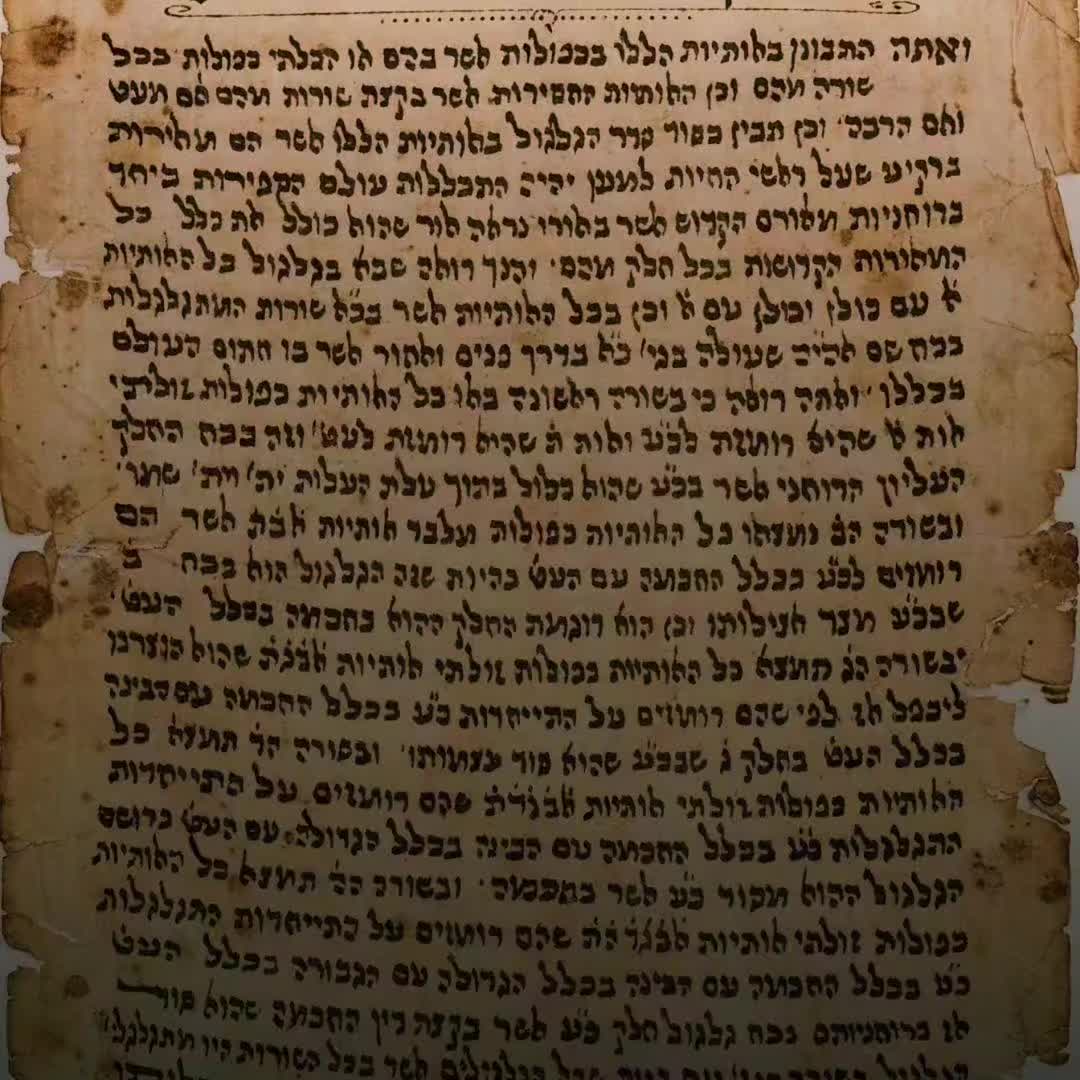 ואתה התבונן באותיות הללו בכפולות אשר בהם או הבלתי כפולות בכל
שורה מהם וכן האותיות החסירות אשר בקצת שורות מהם אם מעט
ואם הרבה׳ וכן תבין בסוד סדר הגלגול באותיות הללו אשר הם מאירות
ברקיע שעל ראשי החיות למען יהיה התכללות עולם הספירות ביחד
ברוחניות מאורם הקדוש אשר באורו נראה אור שהוא כולל את כלל כל
המאורות הקדושות בכל חלק מהם׳ והנך רואה שבא בגלגול כל האותיות
א עם כולן וכולן עם א וכן בכל האותיות אשר בכ״א שורות המתגלגלות
בכח שם אהיה שעולה בגי׳ כ״א בדרך פנים ואחור אשר בו חתום העולם
בכללו ואתה רואה כי בשורה ראשונה באו כל האותיות כפולות זולתי
אות א שהיא רומזת לכ״ע ואות ת שהיא רומזת לעט׳ וזה בכח החלק
העליון הרוחני אשר בכ״ע שהוא כלול בתוך עלת העלות ית׳ וית׳ שמו׳
ובשורה הב נמצאו כל האותיות כפולות מלבד אותיות אבת אשר הם
רומזים לכ״ע בכלל החכמה עם העט בהיות שזה הגלגול הוא בכח ב
שבכ״ע מצד אצילותו וכן הוא דוגמת החלק ההוא בחכמה בכלל העט׳
ובשורה הג תמצא כל האותיות כפולות זולתי אותיות אבגת שהוא הנערכו
ליכפל אז לפי שהם רומזים על התייחדות כ״ע בכלל החכמה עם הבינה
בכלל העט בחלק ג שבכ״ע שהוא סוד עצמותו׳ ובשורה הד תמצא כל
האותיות כפולות זולתי אותיות אבגדת שהם רומזים על התייחדות
ההגלגלות כ״ע בכלל החכמה עם הבינה בכלל הגדולה עם העט כרושם
הגלגול ההוא מקור כ״ע אשר בחכמה׳ ובשורה הה תמצא כל האותיות
כפולות זולתי אותיות אבגדהת שהם רומזים על התייחדות התגלגלות
כ״ע בכלל החכמה עם הבינה בכלל הגדולה עם הגבורה בכלל העט
אז ברוחניותם בכח גלגול חלק כ״ע אשר בקצה דין החכמה שהוא סוד
אשר בכל השורות היו מתגלגל